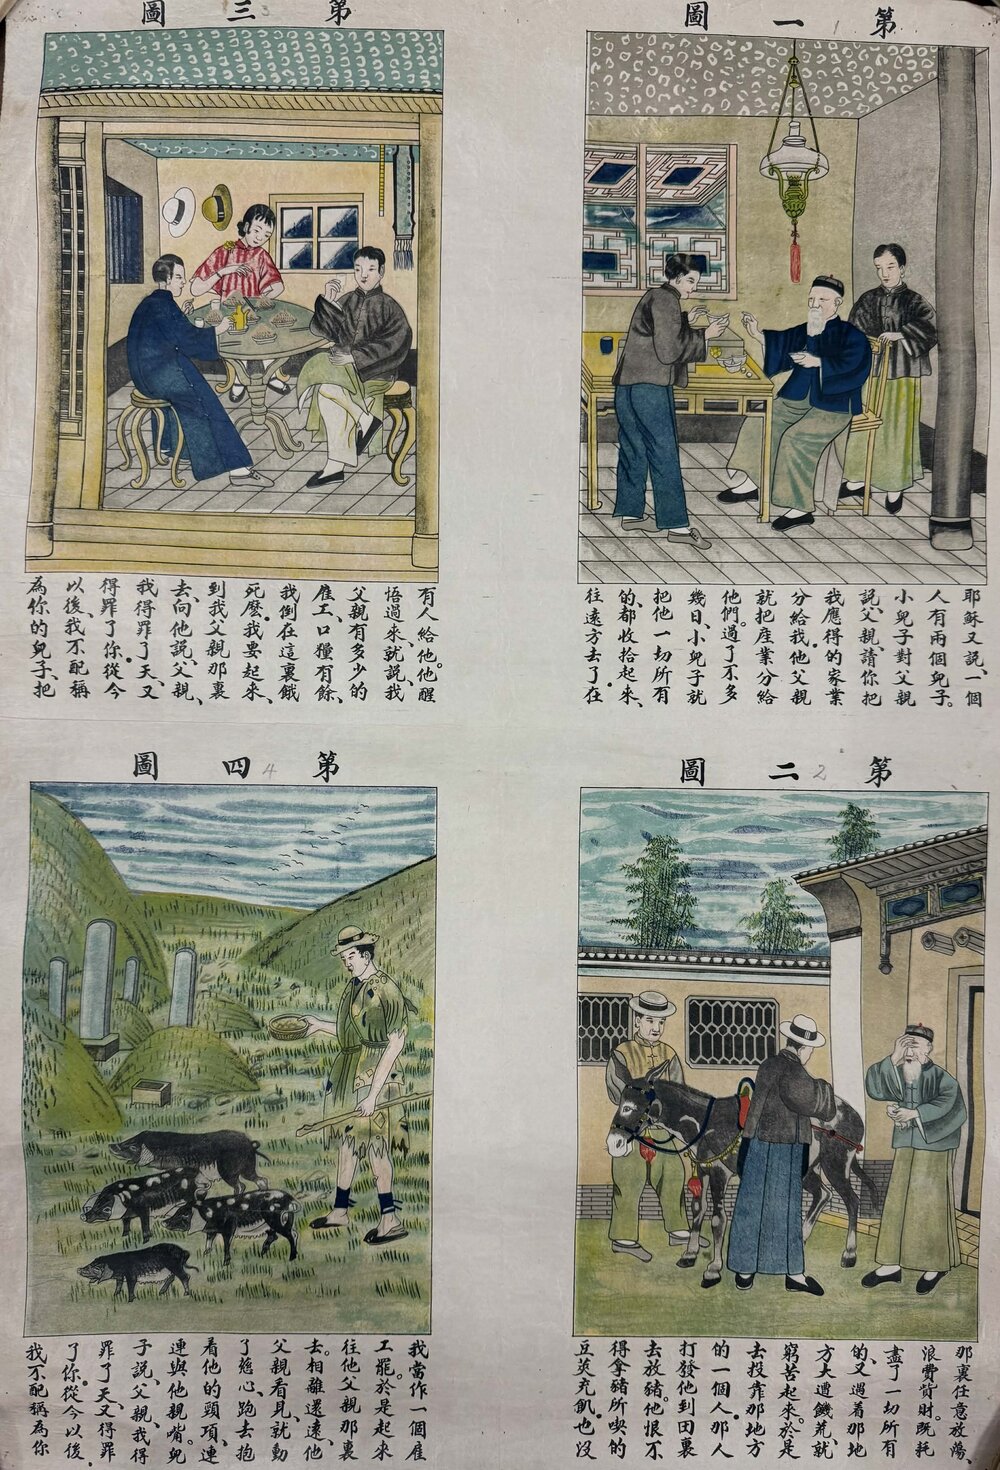 第一圖
1
耶穌又説、一個
人有兩個兒子。
小兒子對父親
説、父親、請你把
我應得的家業
分給我。他父親
就把產業分給
他們。過了不多
幾日、小兒子就
把他一切所有
的都收拾起來、
往遠方去了。在
第二圖
2
那裏任意放蕩、
浪費貲財。既耗
盡了一切所有
的、又遇着那地
方大遭饑荒、就
窮苦起來。於是
去投靠那地方
的一個人。那人
打發他到田裏
去放豬。他恨不
得拿豬所喫的
豆莢充飢。也沒
第三圖
3
有人給他。他醒
悟過來、就説、我
父親有多少的
雇工、口糧有餘、
我倒在這裏餓
死麽。我要起來、
到我父親那裏
去、向他説、父親、
我得罪了天、又
得罪了你。從今
以後、我不配稱
為你的兒子、把
第四圖
4
我當作一個雇
工罷。於是起來
往他父親那裏
去。相離還遠、他
父親看見、就動
了慈心、跑去抱
着他的頸項、連
連與他親嘴。兒
子説、父親、我得
罪了天、又得罪
了你。從今以後。
我不配稱為你